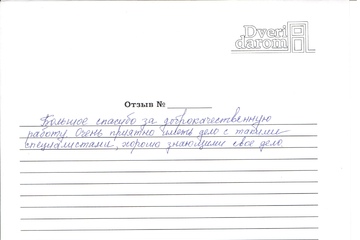 Dveri
darom
Отзыв №
Большое спасибо за доброкачественную
работу. Очень приятно иметь дело с такими
специалистами, хорошо знающими свое дело